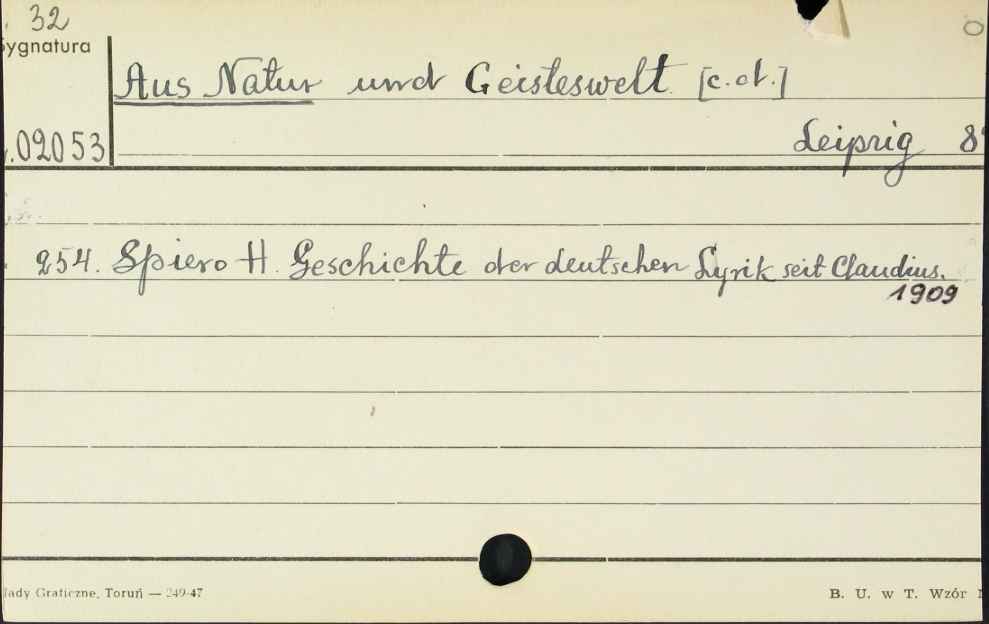 32
Sygnatura
Aus Natur und Geisteswelt [c.d.]
.02053
Leipzig 8°
254. Spiero H. Geschichte der deutschen Lyrik seit Claudius.
1909
łady Graficzne, Toruń — 249-47
B. U. w T. Wzór